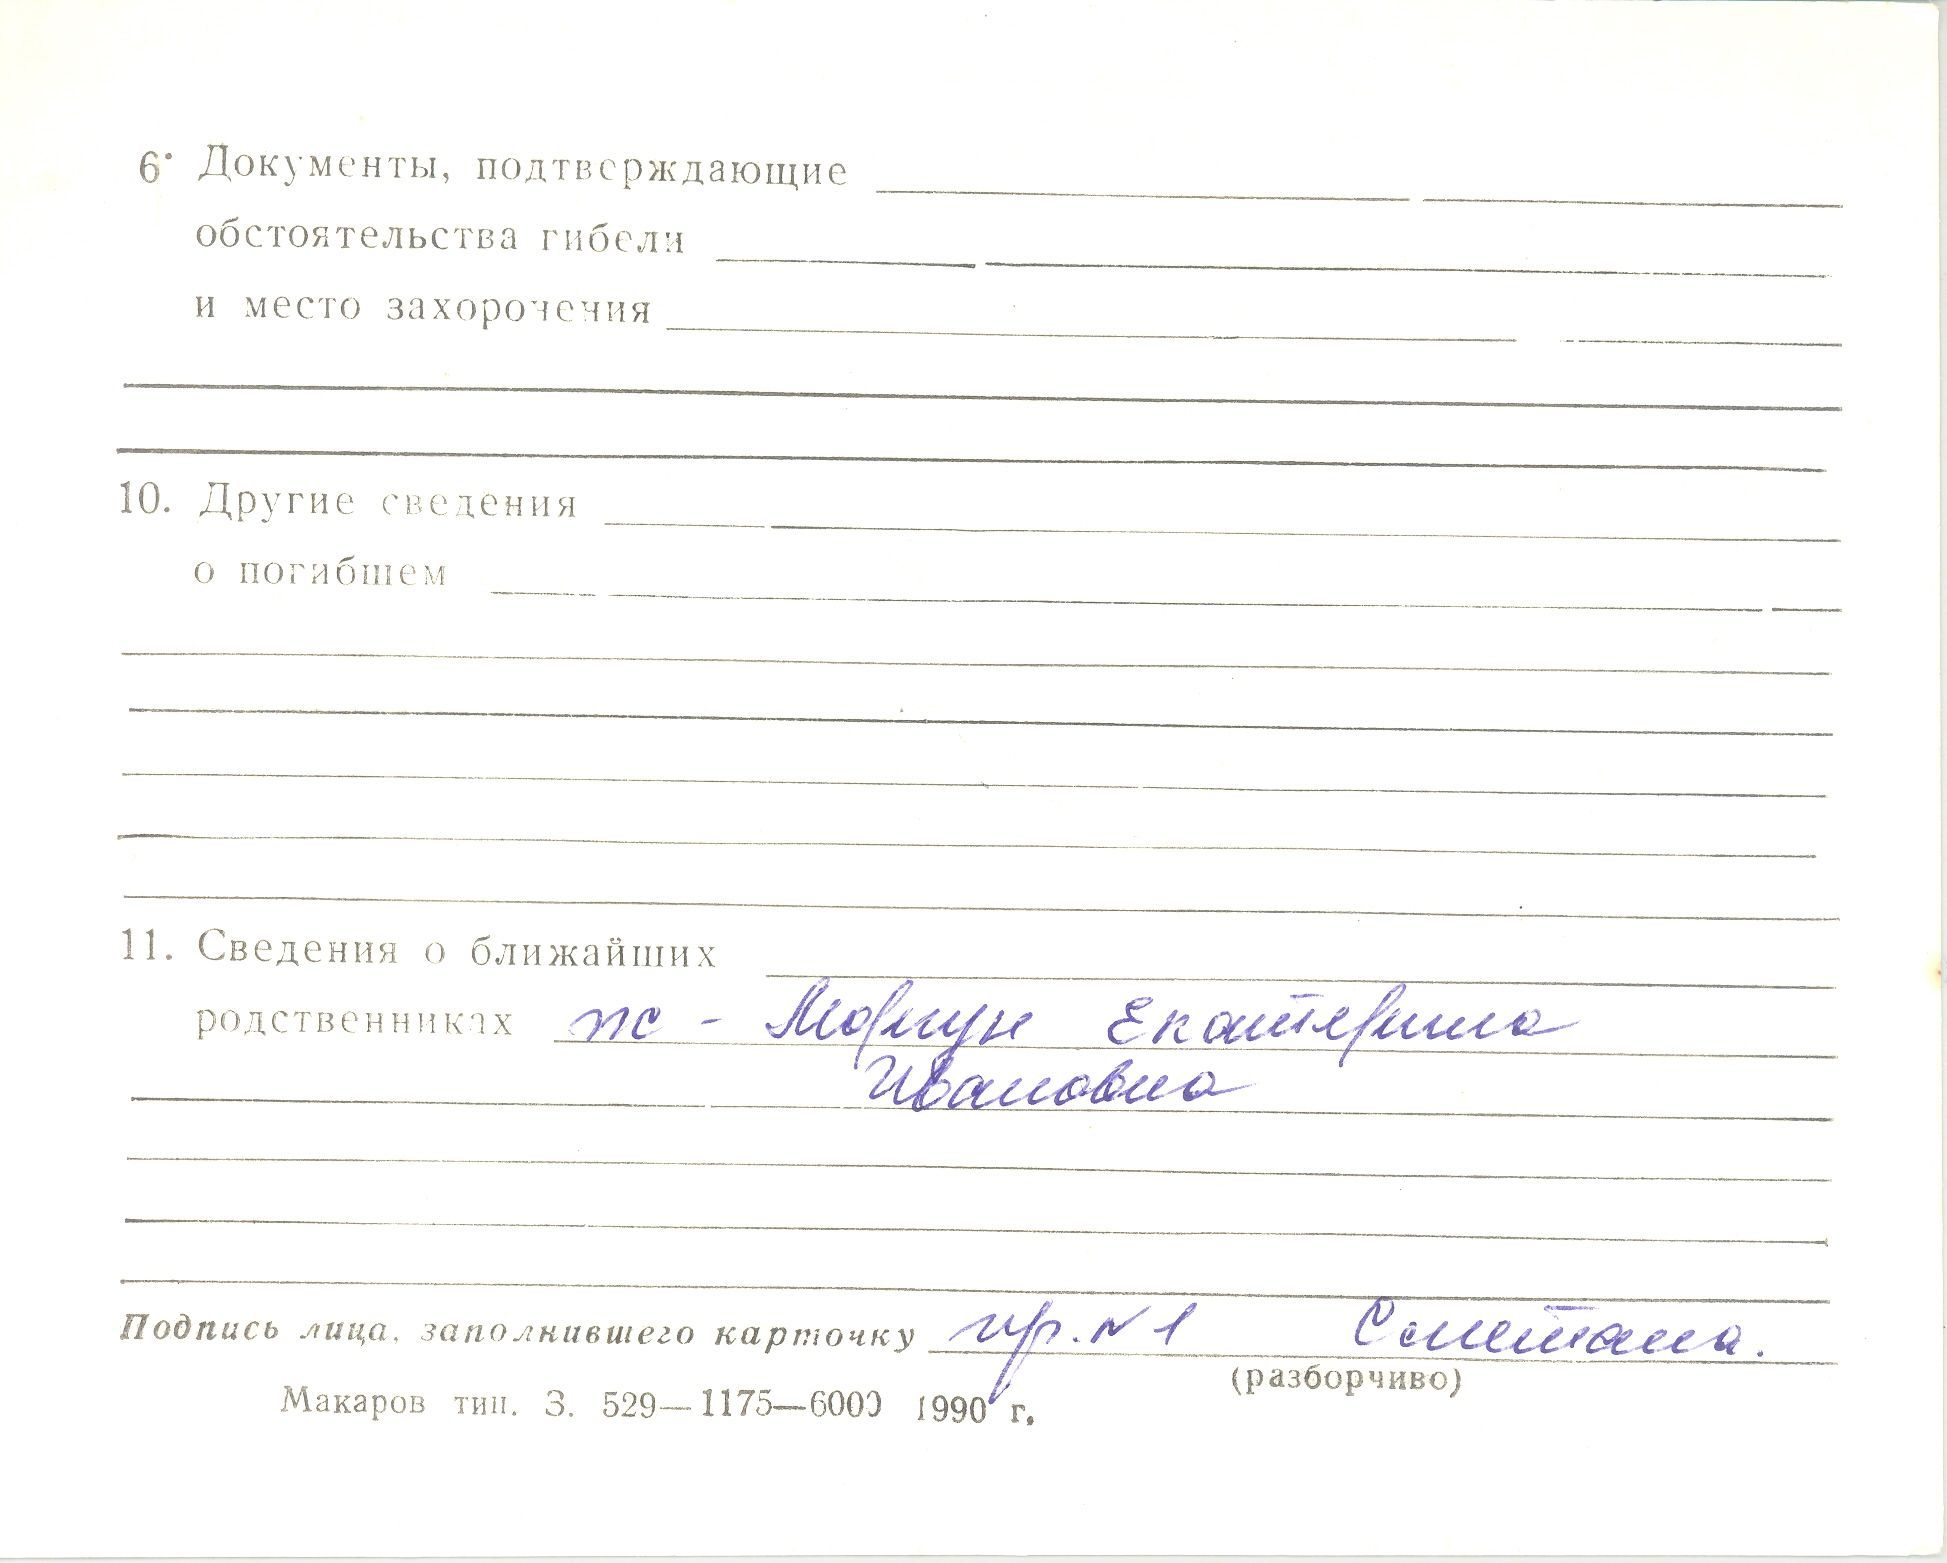 6. Документы, подтверждающие
обстоятельства гибели
и место захоронения
10. Другие сведения
о погибшем
11. Сведения о ближайших
родственниках ж - Моргун Екатерина
Ивановна
Подпись лица, заполнившего карточку гр. №1 Сметана.
(разборчиво)
Макаров тип. З. 529—1175—6000 1990 г.